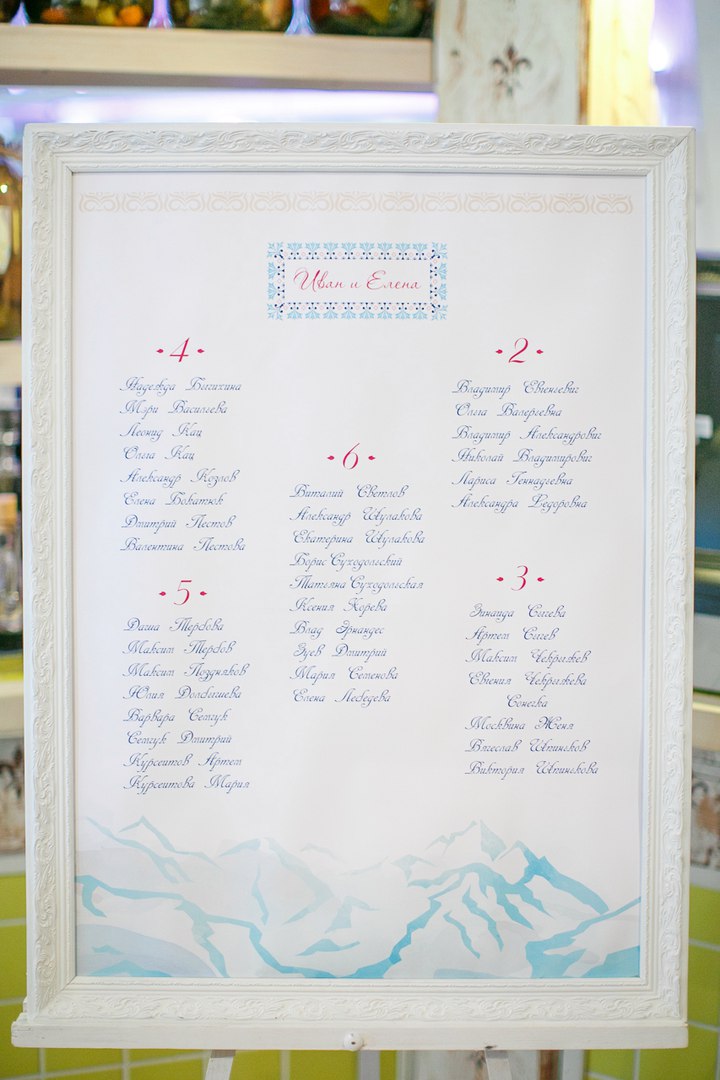 Иван и Елена
4
Надежда
Мэри Васильева
Леонид Кац
Ольга Кац
Александр Козлов
Елена Бокатюк
Дмитрий Пестов
Валентина Пестова
5
Даша Тербова
Максим Тербов
Максим Поздняков
Юлия Долбышева
Варвара Семчук
Семчук Дмитрий
Курсеитов Артем
Курсеитова Мария
6
Виталий Светлов
Александр Шулакова
Екатерина Шулакова
Борис Суходольский
Татьяна Суходольская
Ксения Корева
Влад Эрнандес
Зуев Дмитрий
Мария Семенова
Елена Лебедева
2
Владимир Евгеневич
Ольга Валерьевна
Владимир Александрович
Николай Владимирович
Лариса Геннадьевна
Александра Федоровна
3
Зинаида Сычева
Артем Сычев
Максим Чекрыжев
Евгения Чекрыжева
Сонечка
Москвина Женя
Вячеслав Шпиньков
Виктория Шпинькова